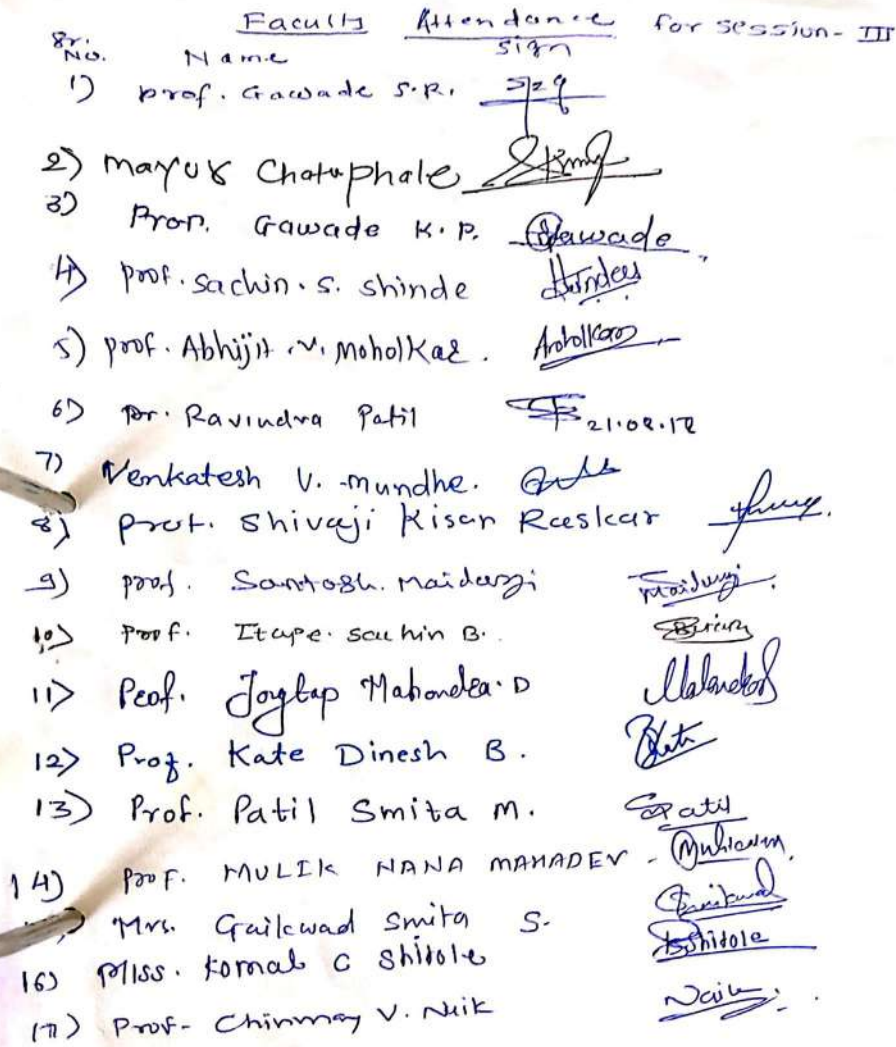 Faculty Attendance for session-III
Sr. No. Name sign
1) prof. Gawade S.R.
2) Mayur Chatuphale
3) Prof. Gawade K.P. Gawade
4) prof. Sachin. S. Shinde Shindess
5) prof. Abhijit .V. Moholkar. Amholkar
6) Dr. Ravindra Patil 21.08.18
7) Venkatesh V. Mundhe.
8) Prof. Shivaji Kisan Raskar
9) prof. Santosh. Maidargi Maidargi
10) Prof. Itape. Sachin B.
11) Prof. Jagtap Mahendra. D
12) Prof. Kate Dinesh B. Kate
13) Prof. Patil Smita M. SPatil
14) Prof. MULIK NANA MAHADEV -
Mrs. Gaikwad Smita S. Gaikwad
16) Miss. Komal C Shitole Shitole
17) Prof- Chinmay V. Naik Naik